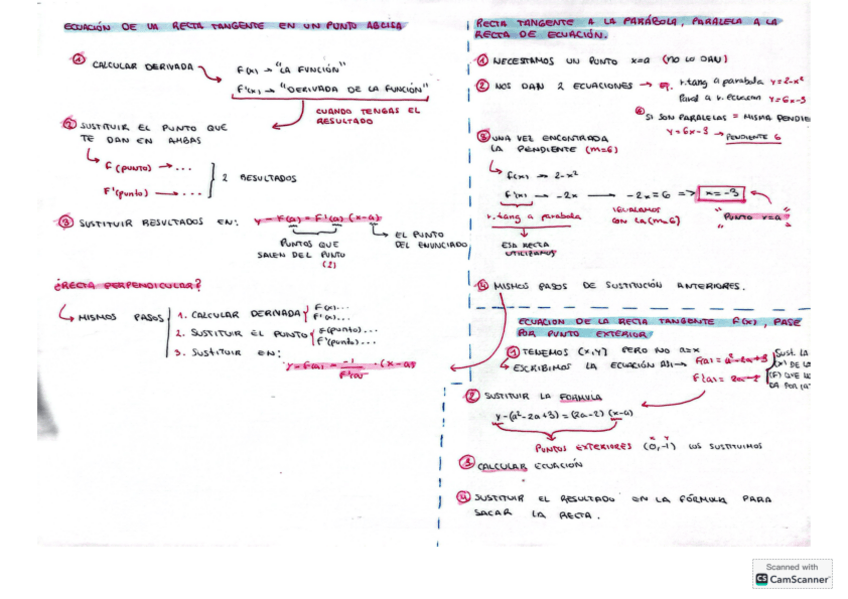 ECUACIÓN DE LA RECTA TANGENTE EN UN PUNTO
① CALCULAR DERIVADA
F(x) → "LA FUNCIÓN"
F'(x) → "DERIVADA DE LA FUNCIÓN"
CUANDO TENGAS EL
RESULTADO
② SUSTITUIR EL PUNTO QUE
TE DAN EN AMBAS
F (PUNTO) → ...
F'(PUNTO) → ...
2 RESULTADOS
③ SUSTITUIR RESULTADOS EN: y - F(a) = F'(a) (x-a)
PUNTOS QUE
SALEN DEL PUNTO
(2)
EL PUNTO
DEL ENUNCIADO
¿RECTA PERPENDICULAR?
MISMOS PASOS
1. CALCULAR DERIVADA
F(x)...
F'(x)...
2. SUSTITUIR EL PUNTO
F(punto)...
F'(punto)...
3. SUSTITUIR EN:
y - F(a) = -1/F'(a) · (x-a)
RECTA TANGENTE A LA PARÁBOLA, PARALELA A LA
RECTA DE ECUACIÓN.
① NECESITAMOS UN PUNTO x=a (NO LO DAN)
② NOS DAN 2 ECUACIONES →
r.tang a parabola y=2-x²
y=6x-3
SI SON PARALELAS = MISMA PENDIE
y=6x-3 → PENDIENTE 6
③ UNA VEZ ENCONTRADA
LA PENDIENTE (m=6)
F(x) → 2-x²
F'(x) → -2x → -2x=6 => x=-3
r.tang a parabola
IGUALAMOS
CON LA (m=6)
"PUNTO x=a"
ESA RECTA
UTILIZAMOS
④ MISMOS PASOS DE SUSTITUCIÓN ANTERIORES.
ECUACION DE LA RECTA TANGENTE F(x), PASE
POR PUNTO EXTERIOR
① TENEMOS (x,y) PERO NO a=x
ESCRIBIMOS LA ECUACIÓN ASI → F(a) = a²-2a+3
F'(a) = 2a-2
SUST. LA
② SUSTITUIR LA FORMULA
y-(a²-2a+3)=(2a-2) (x-a)
PUNTOS EXTERIORES (0,-1) LOS SUSTITUIMOS
x y
③ CALCULAR ECUACIÓN
④ SUSTITUIR EL RESULTADO EN LA FÓRMULA PARA
SACAR LA RECTA.
Scanned with
CS CamScanner